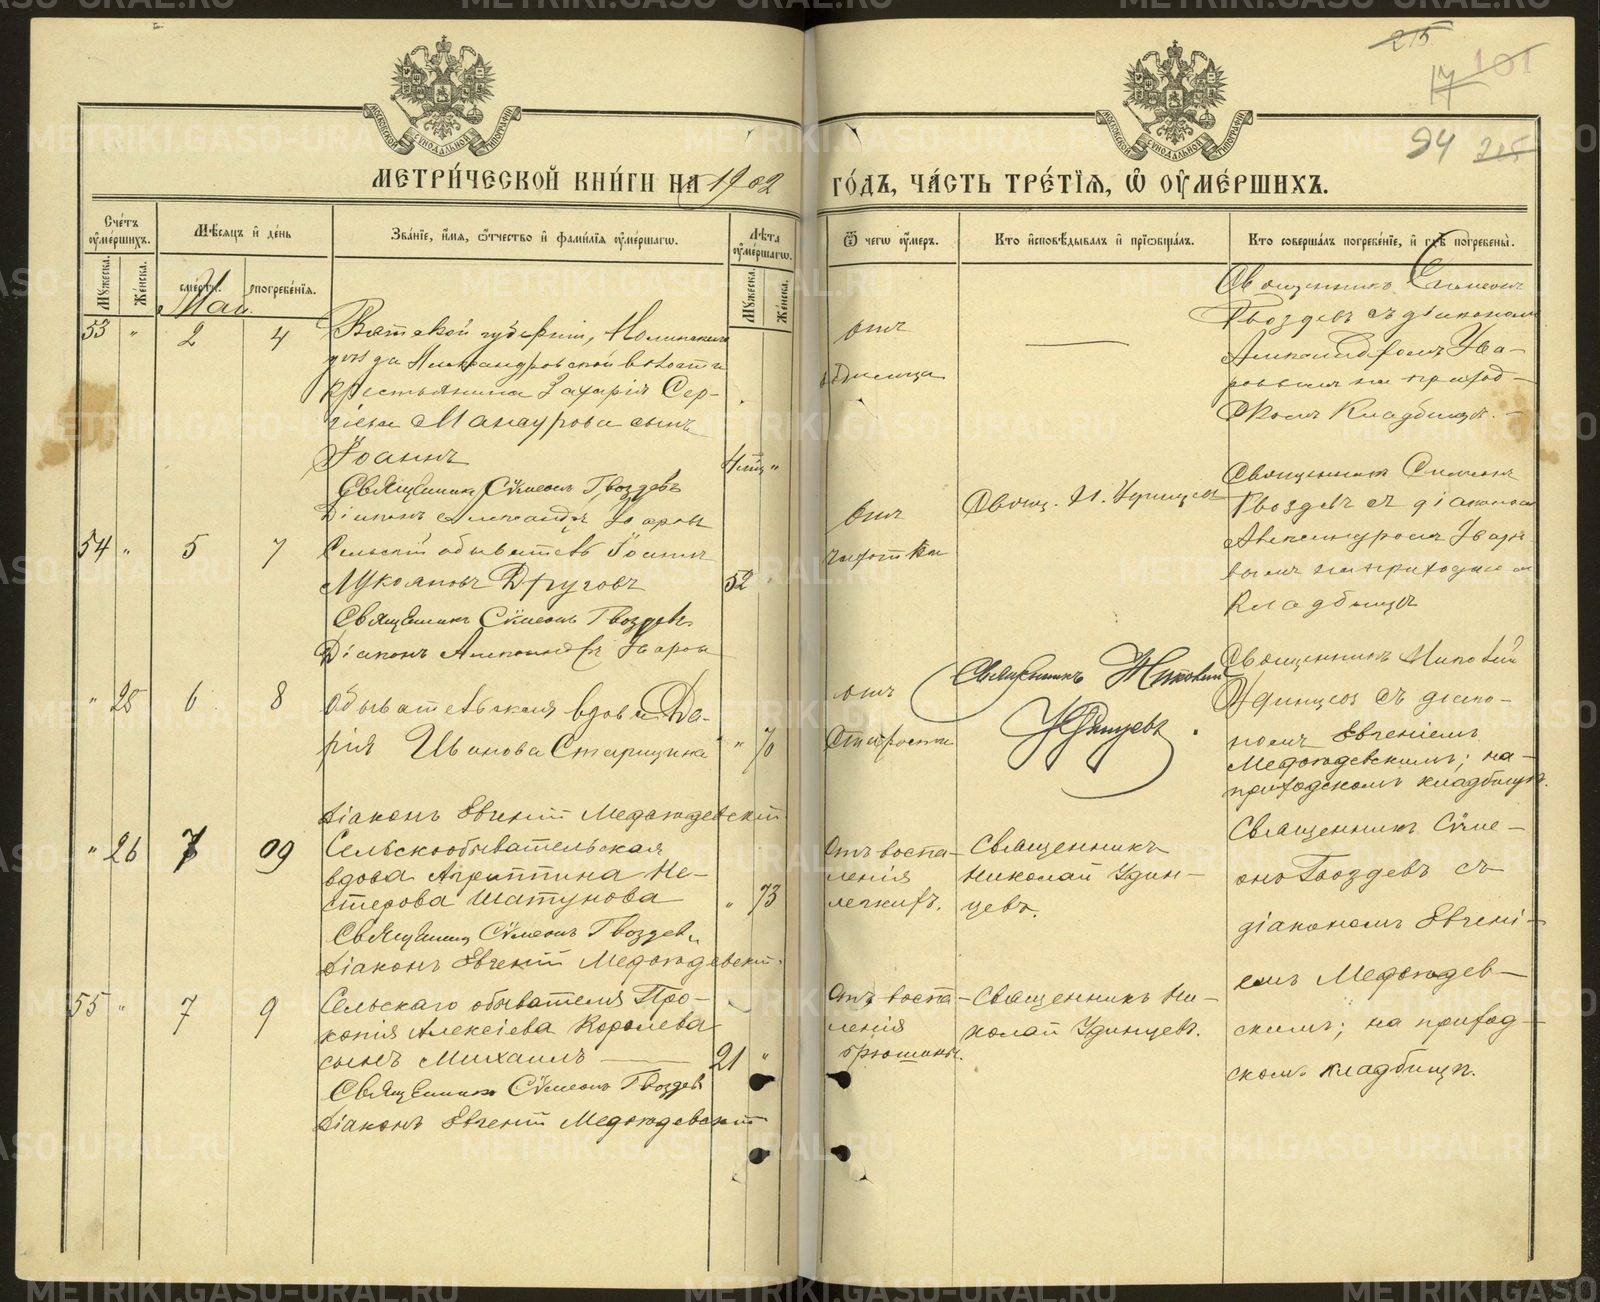 215
17 101
94 215
МОСКОВСКОЙ СѴНОДАЛЬНОЙ ТИПОГРАФІИ
МОСКОВСКОЙ СѴНОДАЛЬНОЙ ТИПОГРАФІИ
МЕТРИ́ЧЕСКОЙ КНИ́ГИ НА 1902
ГО́ДЪ, ЧА́СТЬ ТРЕ́ТІѦ, Ѡ҆ ОУ҆МЕ́РШИХЪ.
Сче́тъ оу҆ме́ршихъ.
Мꙋ́жеска.
Же́нска.
Мѣ́сяцъ и҆ де́нь
сме́рти.
погребе́нія.
Зва́ніе, и҆́мя, ѻ҆́тчество и҆ фами́лія оу҆ме́ршагѡ.
Лѣ́та оу҆ме́ршагѡ.
Мꙋ́жеска.
Же́нска.
Ѿ чегѡ̀ оу҆́меръ.
Кто̀ и҆сповѣ́дывалъ и҆ прїѡбща́лъ.
Кто̀ соверша́лъ погребе́ніе, и҆ гдѣ̀ погребены̀.
Май
53 " 2 4
Вятской губерніи, Нолинскаго
уѣзда Александровской волости
крестьянина Захарія Сер-
гіева Манаурова сынъ
Іоаннъ
4 мѣс "
Священникъ Сѵмеонъ Гвоздевъ
Діаконъ Александръ Уваровъ
отъ
родимца
Священникъ Сѵмеонъ
Гвоздевъ съ діакономъ
Александромъ Ува-
ровымъ на приход-
скомъ кладбищѣ.
54 " 5 7
Сельскій обыватель Іоаннъ
Лукояновъ Друговъ
52
Священникъ Сѵмеонъ Гвоздевъ
Діаконъ Александръ Уваровъ
отъ
чахотки
Свящ. Н. Удинцевъ
Священникъ Симеонъ
Гвоздевъ съ діакономъ
Александромъ Уваро
вымъ на приходскомъ
кладбищѣ
" 25 6 8
Обывательская вдова Да-
рія Иванова Старицина
" 70
Діаконъ Евгеній Медождевскій
отъ
старости
Священникъ Николай
Удинцевъ.
Священникъ Николай
Удинцевъ съ діако-
номъ Евгеніемъ
Медождевскимъ; на
приходскомъ кладбищѣ.
" 26 7 09
Сельскообывательская
вдова Агриппина Не-
стерова Шатунова
" 73
Священникъ Сѵмеонъ Гвоздевъ
Діаконъ Евгеній Медождевскій.
Отъ воспа-
ленія
легкихъ.
Священникъ
Николай Удин-
цевъ.
Священникъ Сѵме-
онъ Гвоздевъ съ
діакономъ Евгені-
емъ Медождев-
скимъ; на приход-
скомъ кладбищѣ.
55 " 7 9
Сельскаго обывателя Про-
копія Алексіева Королева
сынъ Михаилъ
21 "
Священникъ Сѵмеонъ Гвоздевъ
Діаконъ Евгеній Медождевскій
Отъ воспа-
ленія
брюшины.
Священникъ Ни-
колай Удинцевъ.
METRIKI.GASO-URAL.RU